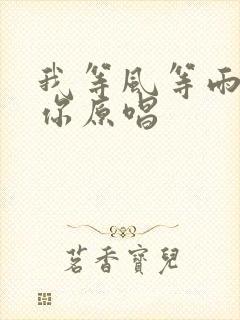 我等風等雨
你原唱
茗香寶兒